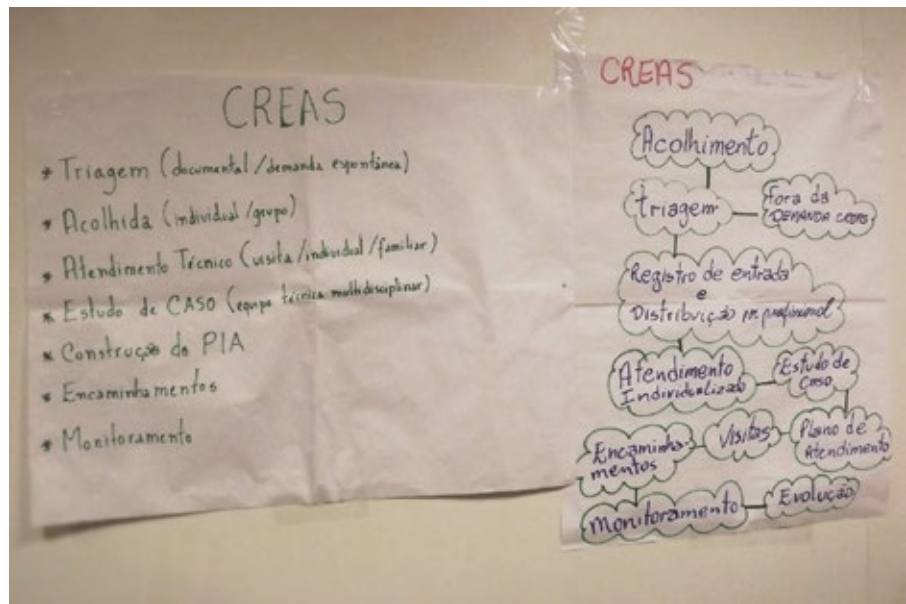 CREAS
* Triagem (documental/demanda espontânea)
* Acolhida (individual/grupo)
* Atendimento Técnico (visita/individual/familiar)
* Estudo de CASO (equipe técnica multidisciplinar)
* Construção do PIA
* Encaminhamentos
* Monitoramento
CREAS
Acolhimento
Triagem
Fora da
DEMANDA CREAS
Registro de entrada
e
Distribuição p/ profissional
Atendimento
Individualizado
Estudo de
Caso
Encaminha-
mentos
Visitas
Plano de
Atendimento
Monitoramento
Evolução